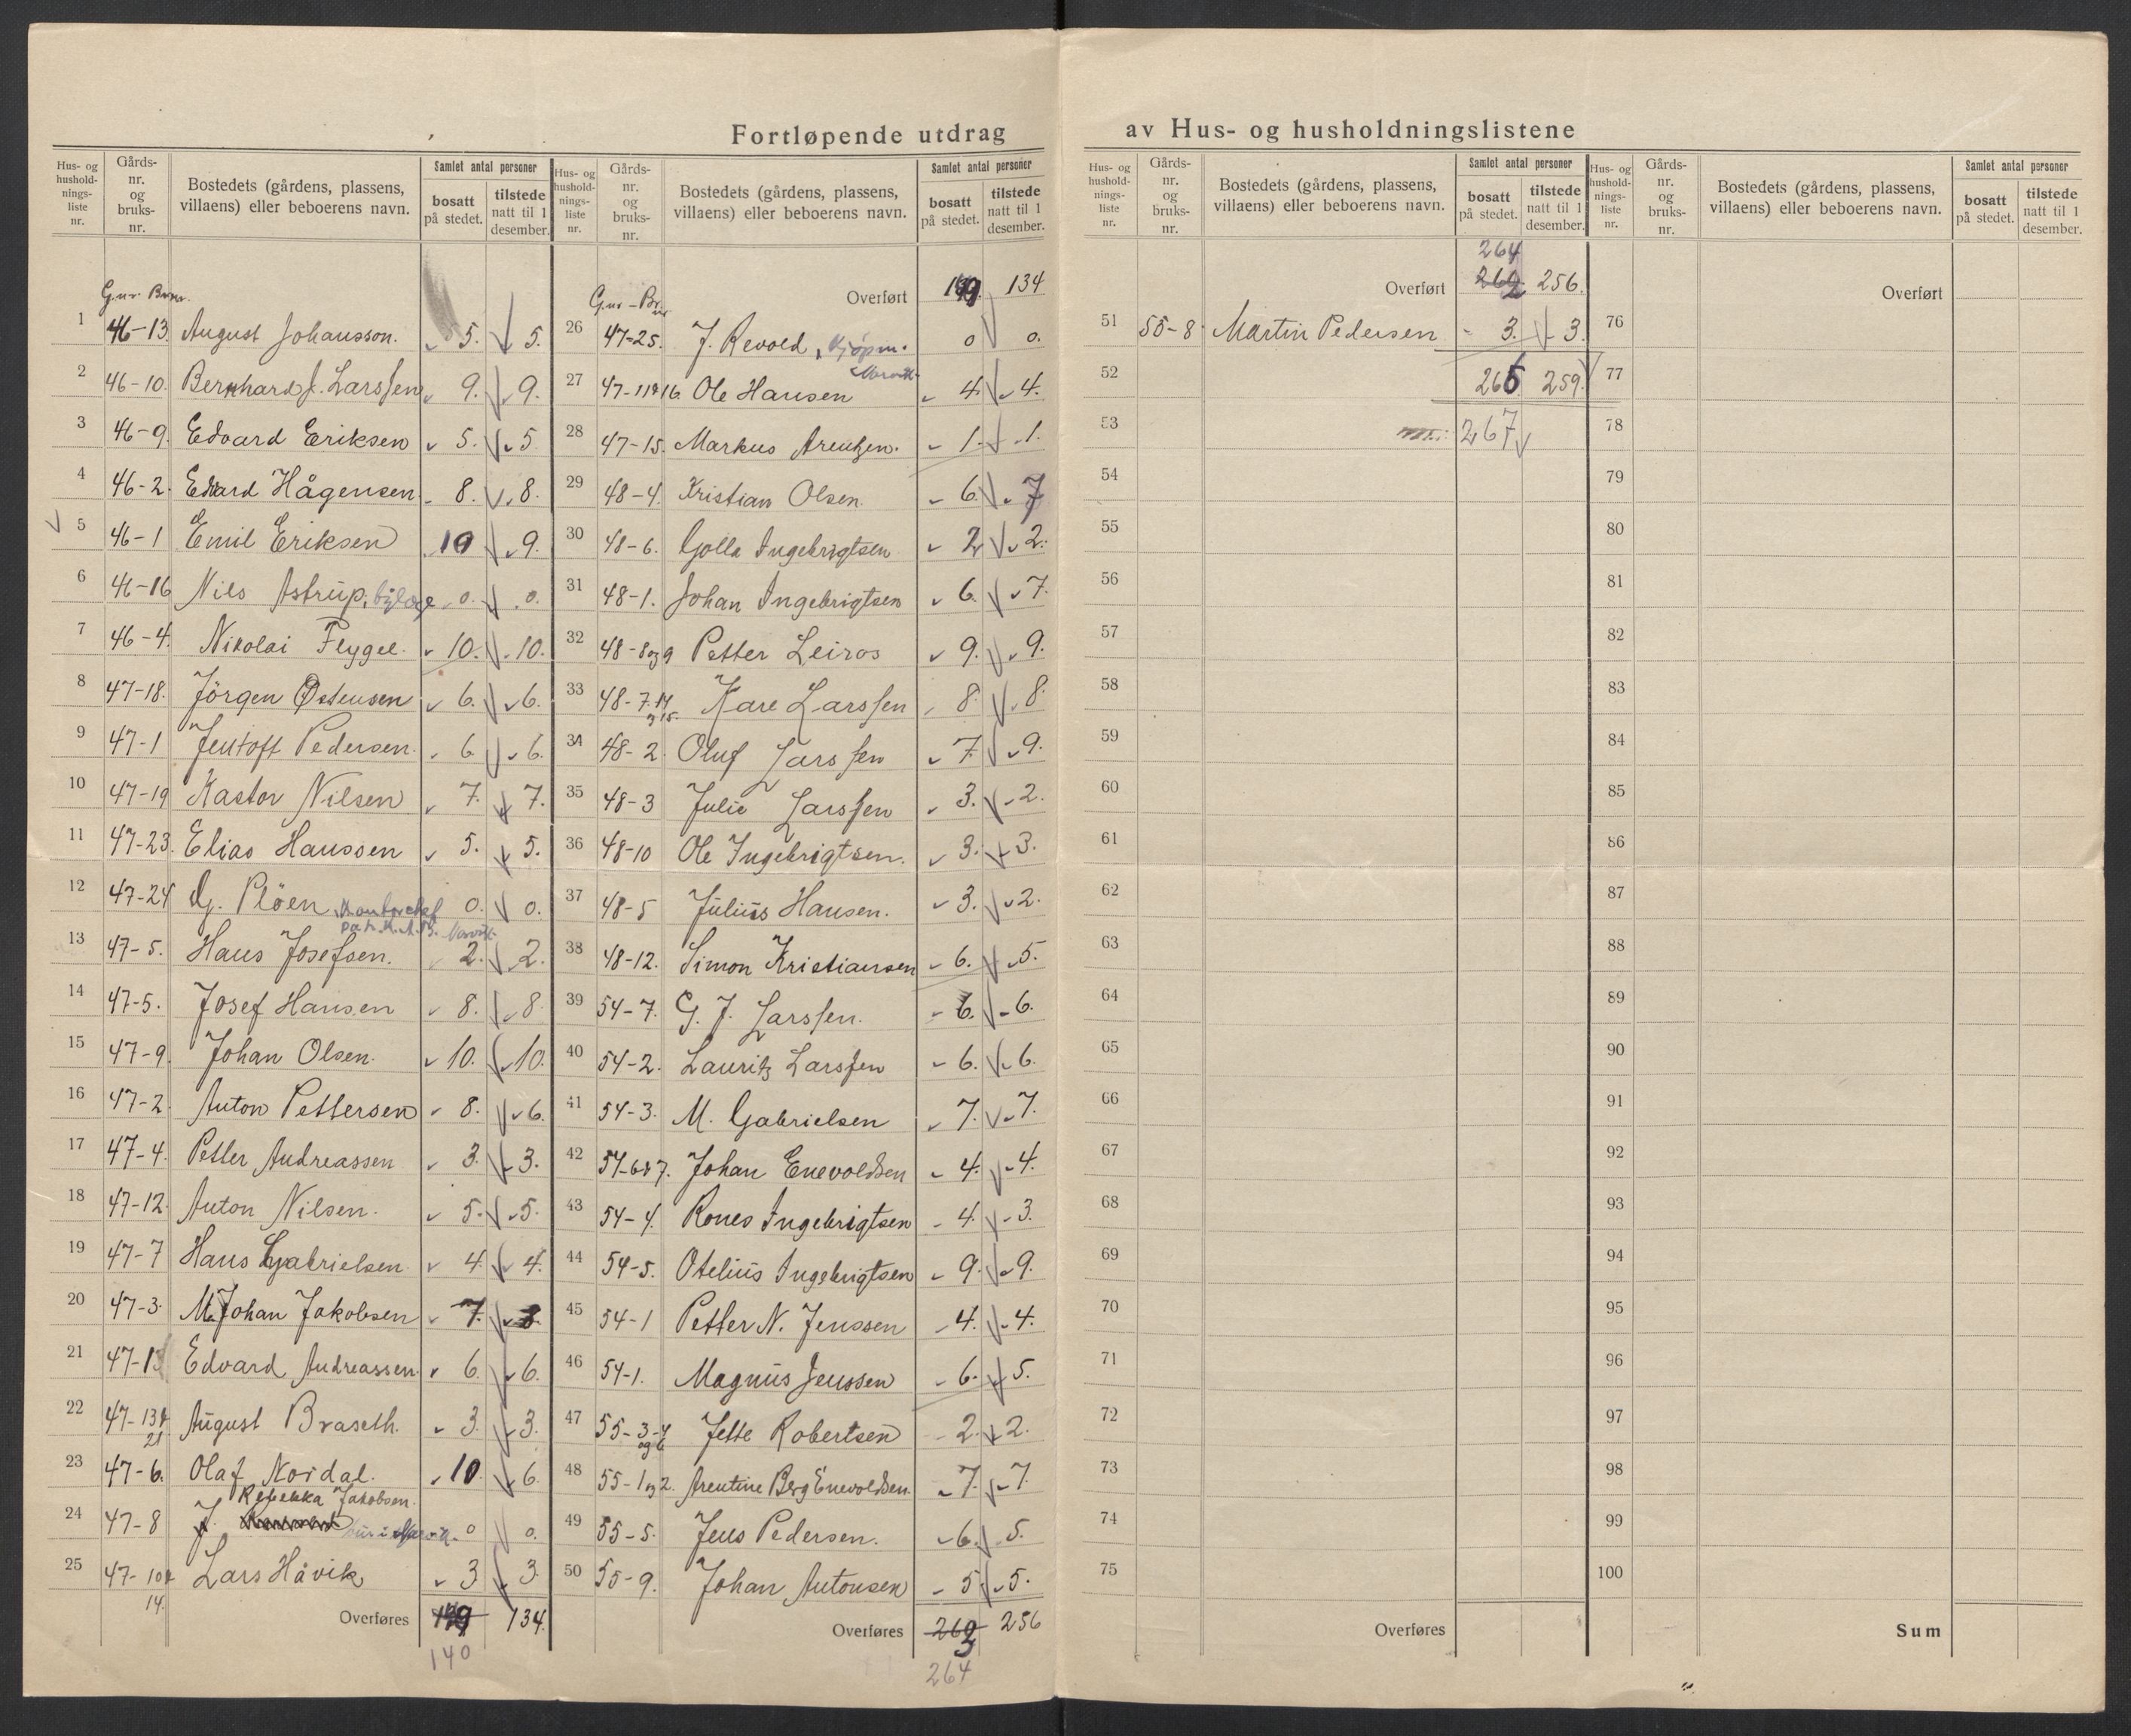 Fortløpende utdrag av Hus- og husholdningslistene
Hus- og husholdningsliste nr. | Gårds-nr. og bruks-nr. | Bostedets (gårdens, plassens, villaens) eller beboerens navn. | Samlet antal personer | bosatt på stedet. | tilstede natt til 1 desember.
G.nr. Br.nr.
1 46-13 August Johansson. 5. 5.
2 46-10. Bernhard J. Larssen 9. 9.
3 46-9. Edvard Eriksen 5. 5
4 46-2. Edvard Hågensen 8. 8.
5 46-1 Emil Eriksen 10 9.
6 46-16 Nils Astrup, 0. 0.
7 46-4. Nikolai Flygel. 10. 10.
8 47-18. Jörgen Østensen 6. 6.
9 47-1 Jentoft Pedersen. 6 6.
10 47-19 Kastor Nilsen 7. 7.
11 47-23. Elias Hanssen 5. 5.
12 47-24 G. Plöen, Kontorchef 0. 0.
Narvik.
13 47-5. Hans Josefsen. 2. 2.
14 47-5. Josef Hansen 8. 8.
15 47-9. Johan Olsen. 10. 10.
16 47-2. Anton Pettersen 8. 6.
17 47-4. Petter Andreassen 3. 3.
18 47-12. Anton Nilsen. 5. 5.
19 47-7 Hans Gabrielsen. 4. 4.
20 47-3. M. Johan Jakobsen 7. 8.
21 47-1 Edvard Andreassen. 6. 6.
22 47-13& 21 August Braseth. 3. 3.
23 47-6. Olaf Nordal. 10. 6.
Rebekka Jakobsen.
24 47-8 0 0.
25 47-10& 14. Lars Håvik 3 3.
Overføres 134.
140
Hus- og husholdningsliste nr. | Gårds-nr. og bruks-nr. | Bostedets (gårdens, plassens, villaens) eller beboerens navn. | Samlet antal personer | bosatt på stedet. | tilstede natt til 1 desember.
G.nr - Br.nr
Overført 139 134
26 47-25. J. Revold, Kjøpm. 0 0.
Narvik.
27 47-11&16. Ole Hansen 4. 4.
28 47-15. Markus Arentzen. 1. 1.
29 48-4. Kristian Olsen. 6. 7
30 48-6. Golla Ingebrigtsen 2 2.
31 48-1. Johan Ingebrigtsen 6. 7.
32 48-8og9 Petter Leiros 9. 9.
33 48-7.14 og 15. Kare Larssen 8. 8.
34 48-2. Oluf Larssen 7. 9.
35 48-3 Julie Larssen 3. 2.
36 48-10 Ole Ingebrigtsen. 3. 3.
37 48-5 Julius Hansen. 3. 2.
38 48-12. Simon Kristiansen 6. 5.
39 54-7. G. J. Larssen. 6. 6.
40 54-2. Lauritz Larssen 6. 6.
41 54-3. M. Gabrielsen 7. 7.
42 54-6&7. Johan Enevoldsen 4. 4.
43 54-4. Rones Ingebrigtsen 4. 3.
44 54-5. Otelius Ingebrigtsen 9. 9.
45 54-1 Petter N. Jenssen 4. 4.
46 54-1. Magnus Jenssen 6. 5.
47 55-3-4 og 6 Jette Robertsen 2. 2.
48 55-1og2. Arentine Berg Enevoldsen. 7. 7.
49 55-5. Jens Pedersen. 6. 5.
50 55-9. Johan Antonsen 5 5.
Overføres 262 256
264
Hus- og husholdningsliste nr. | Gårds-nr. og bruks-nr. | Bostedets (gårdens, plassens, villaens) eller beboerens navn. | Samlet antal personer | bosatt på stedet. | tilstede natt til 1 desember.
264
Overført 262 256.
51 55-8 Martin Pedersen 3. 3.
52 265 259.
53 267
54
55
56
57
58
59
60
61
62
63
64
65
66
67
68
69
70
71
72
73
74
75
Overføres
Hus- og husholdningsliste nr. | Gårds-nr. og bruks-nr. | Bostedets (gårdens, plassens, villaens) eller beboerens navn. | Samlet antal personer | bosatt på stedet. | tilstede natt til 1 desember.
Overført
76
77
78
79
80
81
82
83
84
85
86
87
88
89
90
91
92
93
94
95
96
97
98
99
100
Sum